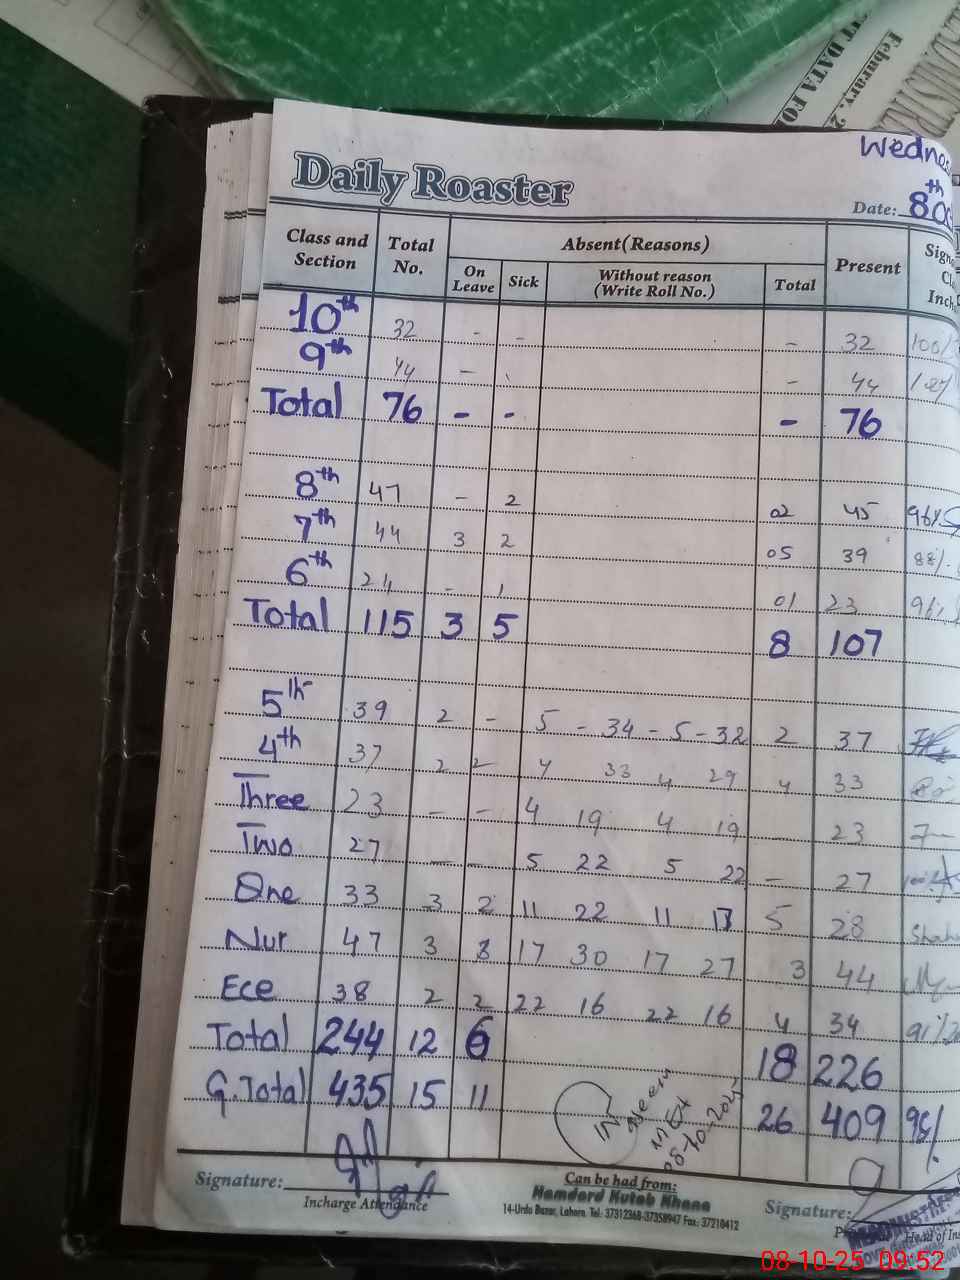 Wednes
Daily Roaster
Date: 8th Oc
Class and Section Total No. Absent(Reasons) Present Sign
On Leave Sick Without reason (Write Roll No.) Total
10th 32 - - - 32 100
9th 44 - - 44
Total 76 - - - 76
8th 47 - 2 02 45 96%
7th 44 3 2 05 39 88%
6th 24 - 1 01 23 96%
Total 115 3 5 8 107
5th 39 2 - 5 - 34 - 5 - 32 2 37
4th 37 2 2 4 33 4 29 4 33
Three 23 - - 4 19 4 19 23
Two 27 - - 5 22 5 22 - 27
One 33 3 2 11 22 11 5 28
Nur 47 3 17 30 17 27 3 44
Ece 38 2 2 22 16 22 16 4 34 91%
Total 244 12 6 18 226
G.Total 435 15 11 26 409
IN
MEA
08-10-2025
Signature:
Incharge Attendance
Can be had from:
Hamdard Kutab Khana
14-Urdu Bazar, Lahore. Tel: 37312368-37358947 Fax: 37210412
Signature:
Head of Ins
08-10-25 09:52
Feburary, 2
IT DATA FO